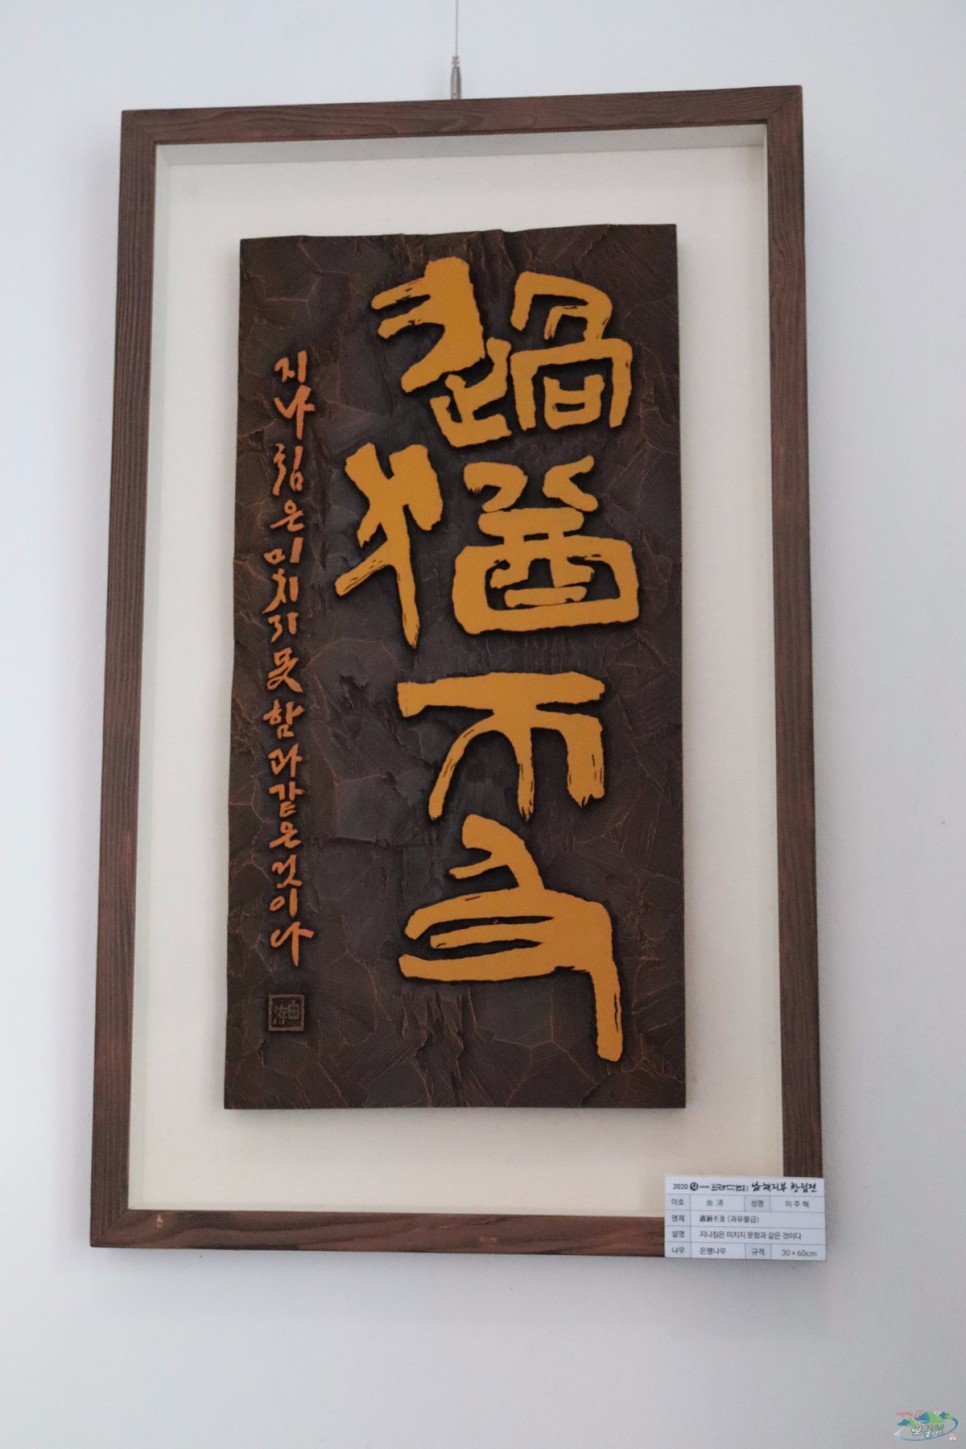 過猶不及
지나침은 미치지 못함과 같은 것이다
2020 남해지부 창립전
아호 성명 이주혁
명제 過猶不及 (과유불급)
설명 지나침은 미치지 못함과 같은 것이다
나무 은행나무 규격 30×60cm